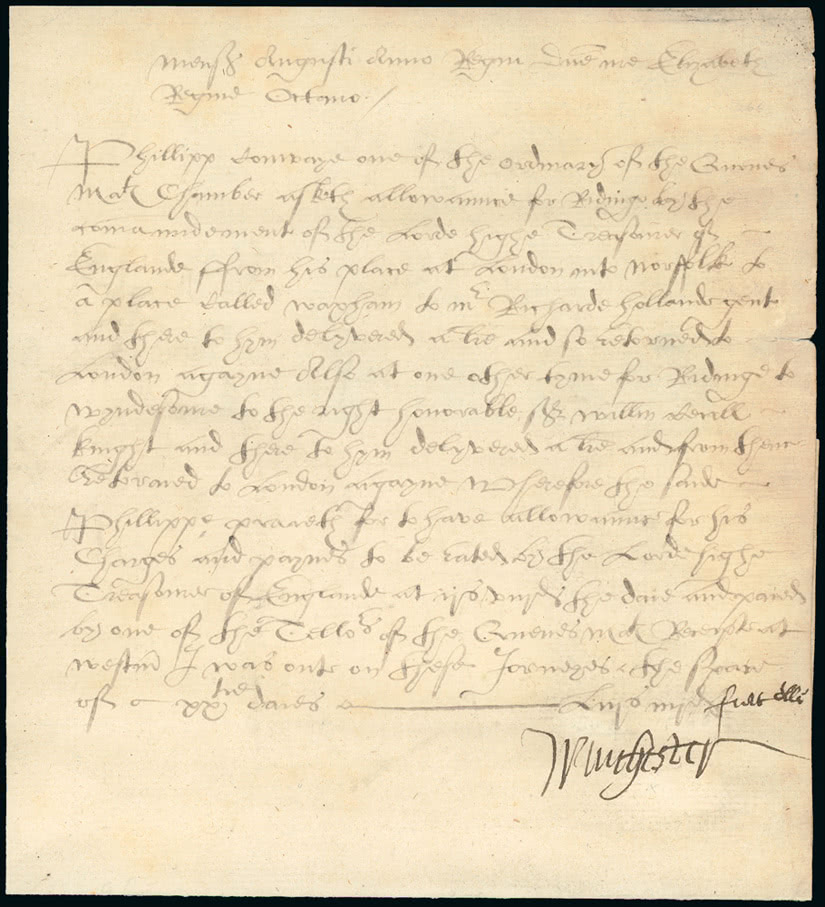 Mens̃ Augusti Anno Regni Dñe nre Elizabeth
Regine Octavo /
Phillipp Conwaye one of the ordinary of the Quenes
Mats Chamber asketh allowaunce for Ridinge by the
comaundement of the Lorde highe Treasourer of
Englande ffrom his place at London into Norffolk to
a place called waxham to mr Richarde hollande gent
and there to hym delyvered a lre and so retorned to
London agayne Also at one other tyme for Ridinge to
wyndesore to the right honorable Sr willm Cecill
knight and there to hym delyvered a lre and from thence
retorned to London agayne Wherefore the saide
Phillippe prayeth for to have allowaunce for his
Charges and paynes to be rated by the Lorde highe
Treasourer of Englande at the daie and paied
by one of the Tellors of the Quenes mats Receipte at
westmr I was oute on these Jorneyes the space
of xxtie daies
Winchester